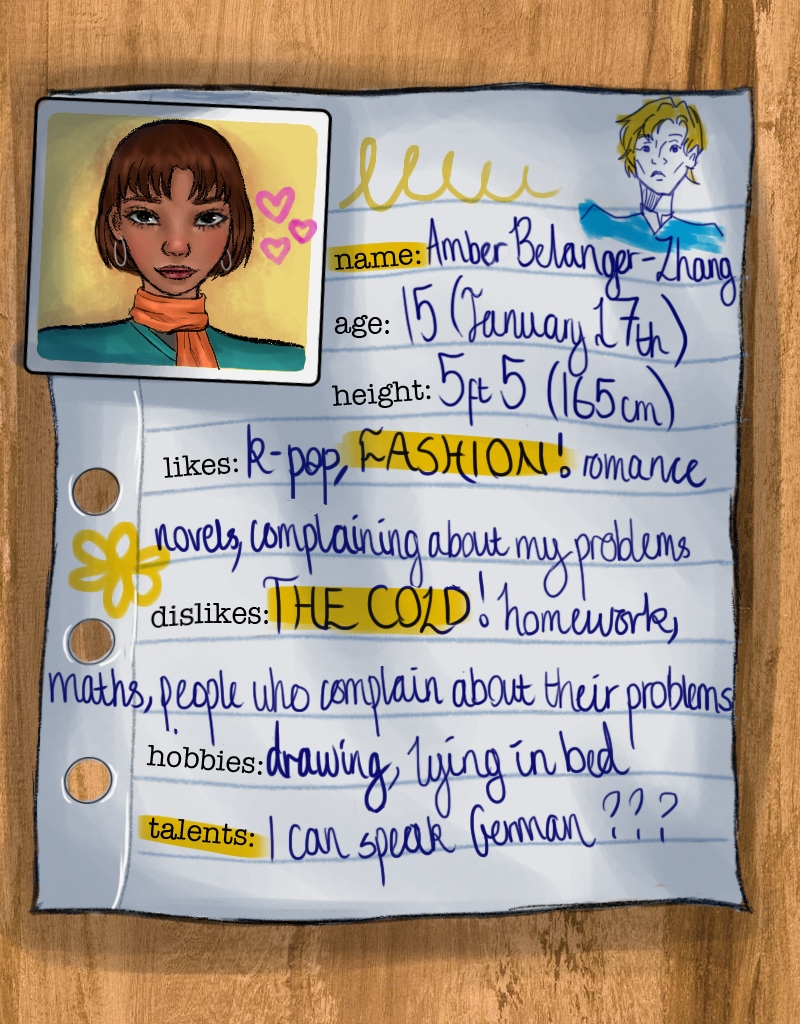 name: Amber Belanger-Zhang
age: 15 (January 17th)
height: 5ft 5 (165cm)
likes: k-pop, FASHION! romance
novels, complaining about my problems
dislikes: THE COLD! homework,
maths, people who complain about their problems
hobbies: drawing, lying in bed
talents: I can speak German ???